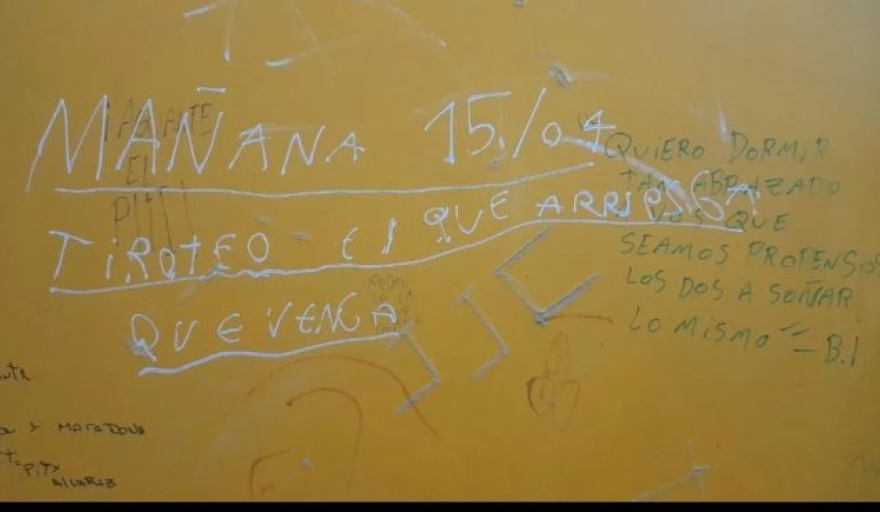 MAÑANA 15/04
TiROTEO El QUE ARRIESGA
QUE VENGA
¡AGUANTE
EL
PITY!
QUiERO DORMIR
TAN ABRAZADO
A VOS QUE
SEAMOS PROPENSOS
LOS DOS A SOÑAR
LO MISMO = B.I
MARADONA
PiTY
ALVAREZ